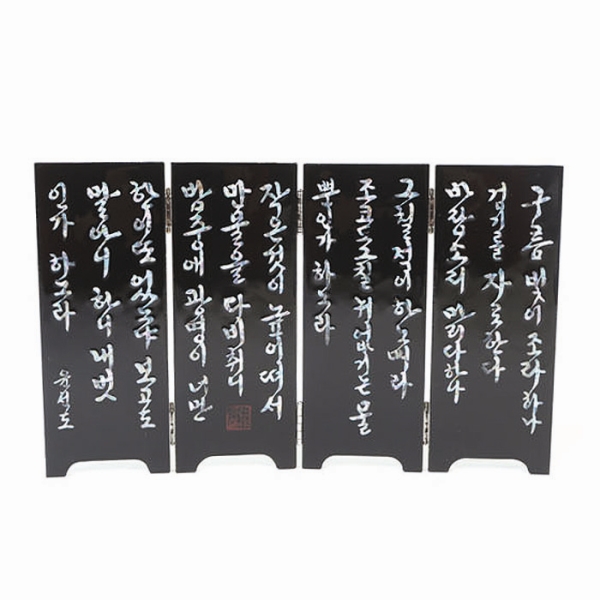 구름 빛이 조타하나
검기를 자로한다
바람소리 맑다하나
그칠적이 하노매라
조코도 그칠 뉘 없기는 물
뿐인가 하노라
작은것이 높이떠서
만물을 다비취니
밤중에 광명이 너만
한이또 있느냐 보고도
말아니 하니 내벗
인가 하노라
윤선도